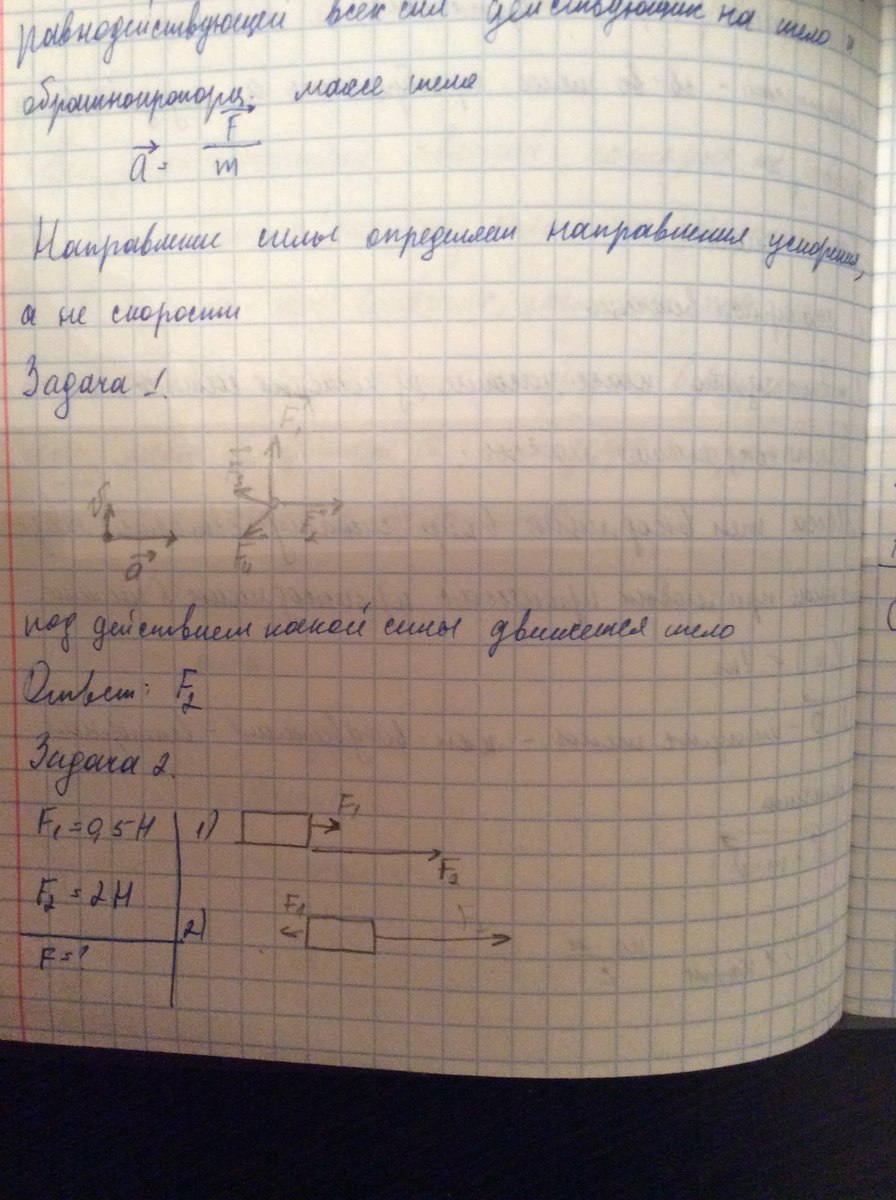 равнодействующей всех сил действующих на тело и
обратнопропорц. массе тела
a = F
m
Направление силы определяет направления ускорения,
а не скорости
Задача 1.
F₁
a
F₂
под действием какой силы движется тело
Ответ: F₂
Задача 2.
F₁ = 0,5 Н
F₂ = 2 Н
F = ?
1)
F₁
F₂
2)
F₁